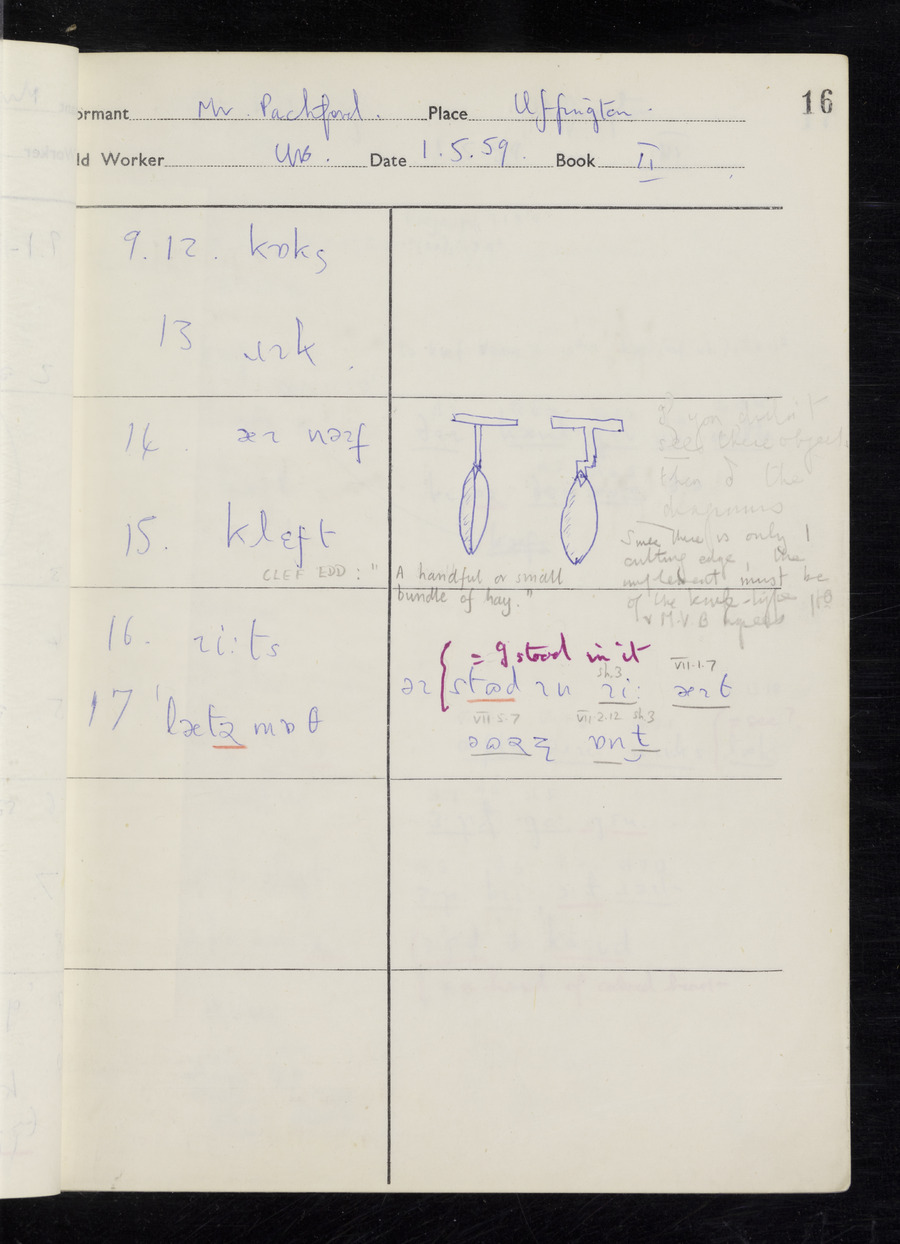 16
ormant Mr. Packford. Place Uffington.
ld Worker Date 1.5.59. Book II
9.12. kɒks
13 ɹɪk
14. əɪ
15. klɛft
CLEF EDD: "A handful or small
bundle of hay."
If you didn't
see these objects
then the
diagrams
Since there is only 1
cutting edge, the
implement must be
of the knife-type
M.V.B agrees
16. ɹi:ts
17 ˈlætɚmɒθ
= I stood in it
sh.3
VII.1.7
stʊd ɪn ɹi: əɪt
VII.5.7 VII.2.12 sh3
ɒnt